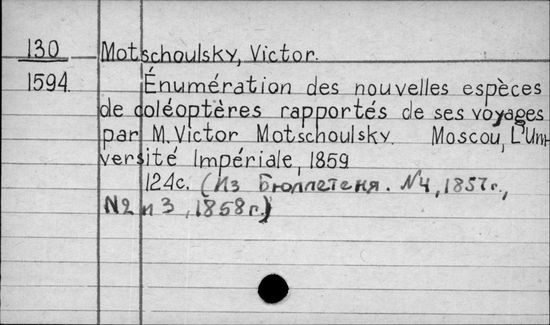 130 Motschoulsky, Victor.
1594. Énumération des nouvelles espèces
de coléoptères rapportés de ses voyages
par M. Victor Motschoulsky. Moscou, L'Uni-
versité Impériale, 1859
124c. (Из Бюллетеня. №4, 1857г.,
№2 и 3, 1858г.)